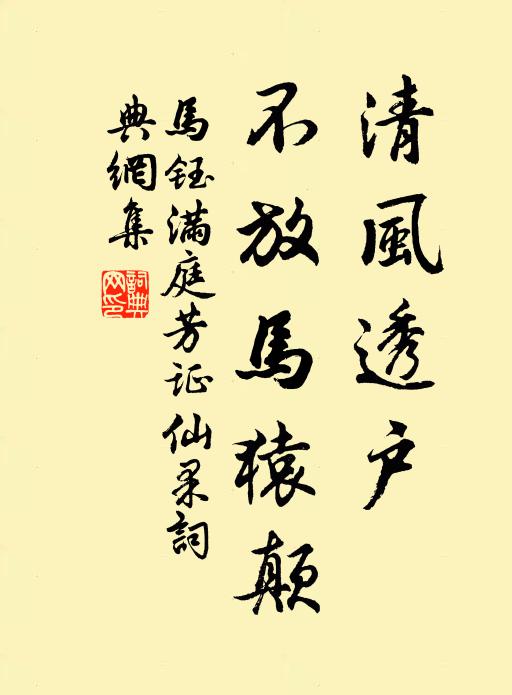 清風透户
不放馬猿顛
馬鈺滿庭芳证仙果詞
典網集
詞典網印